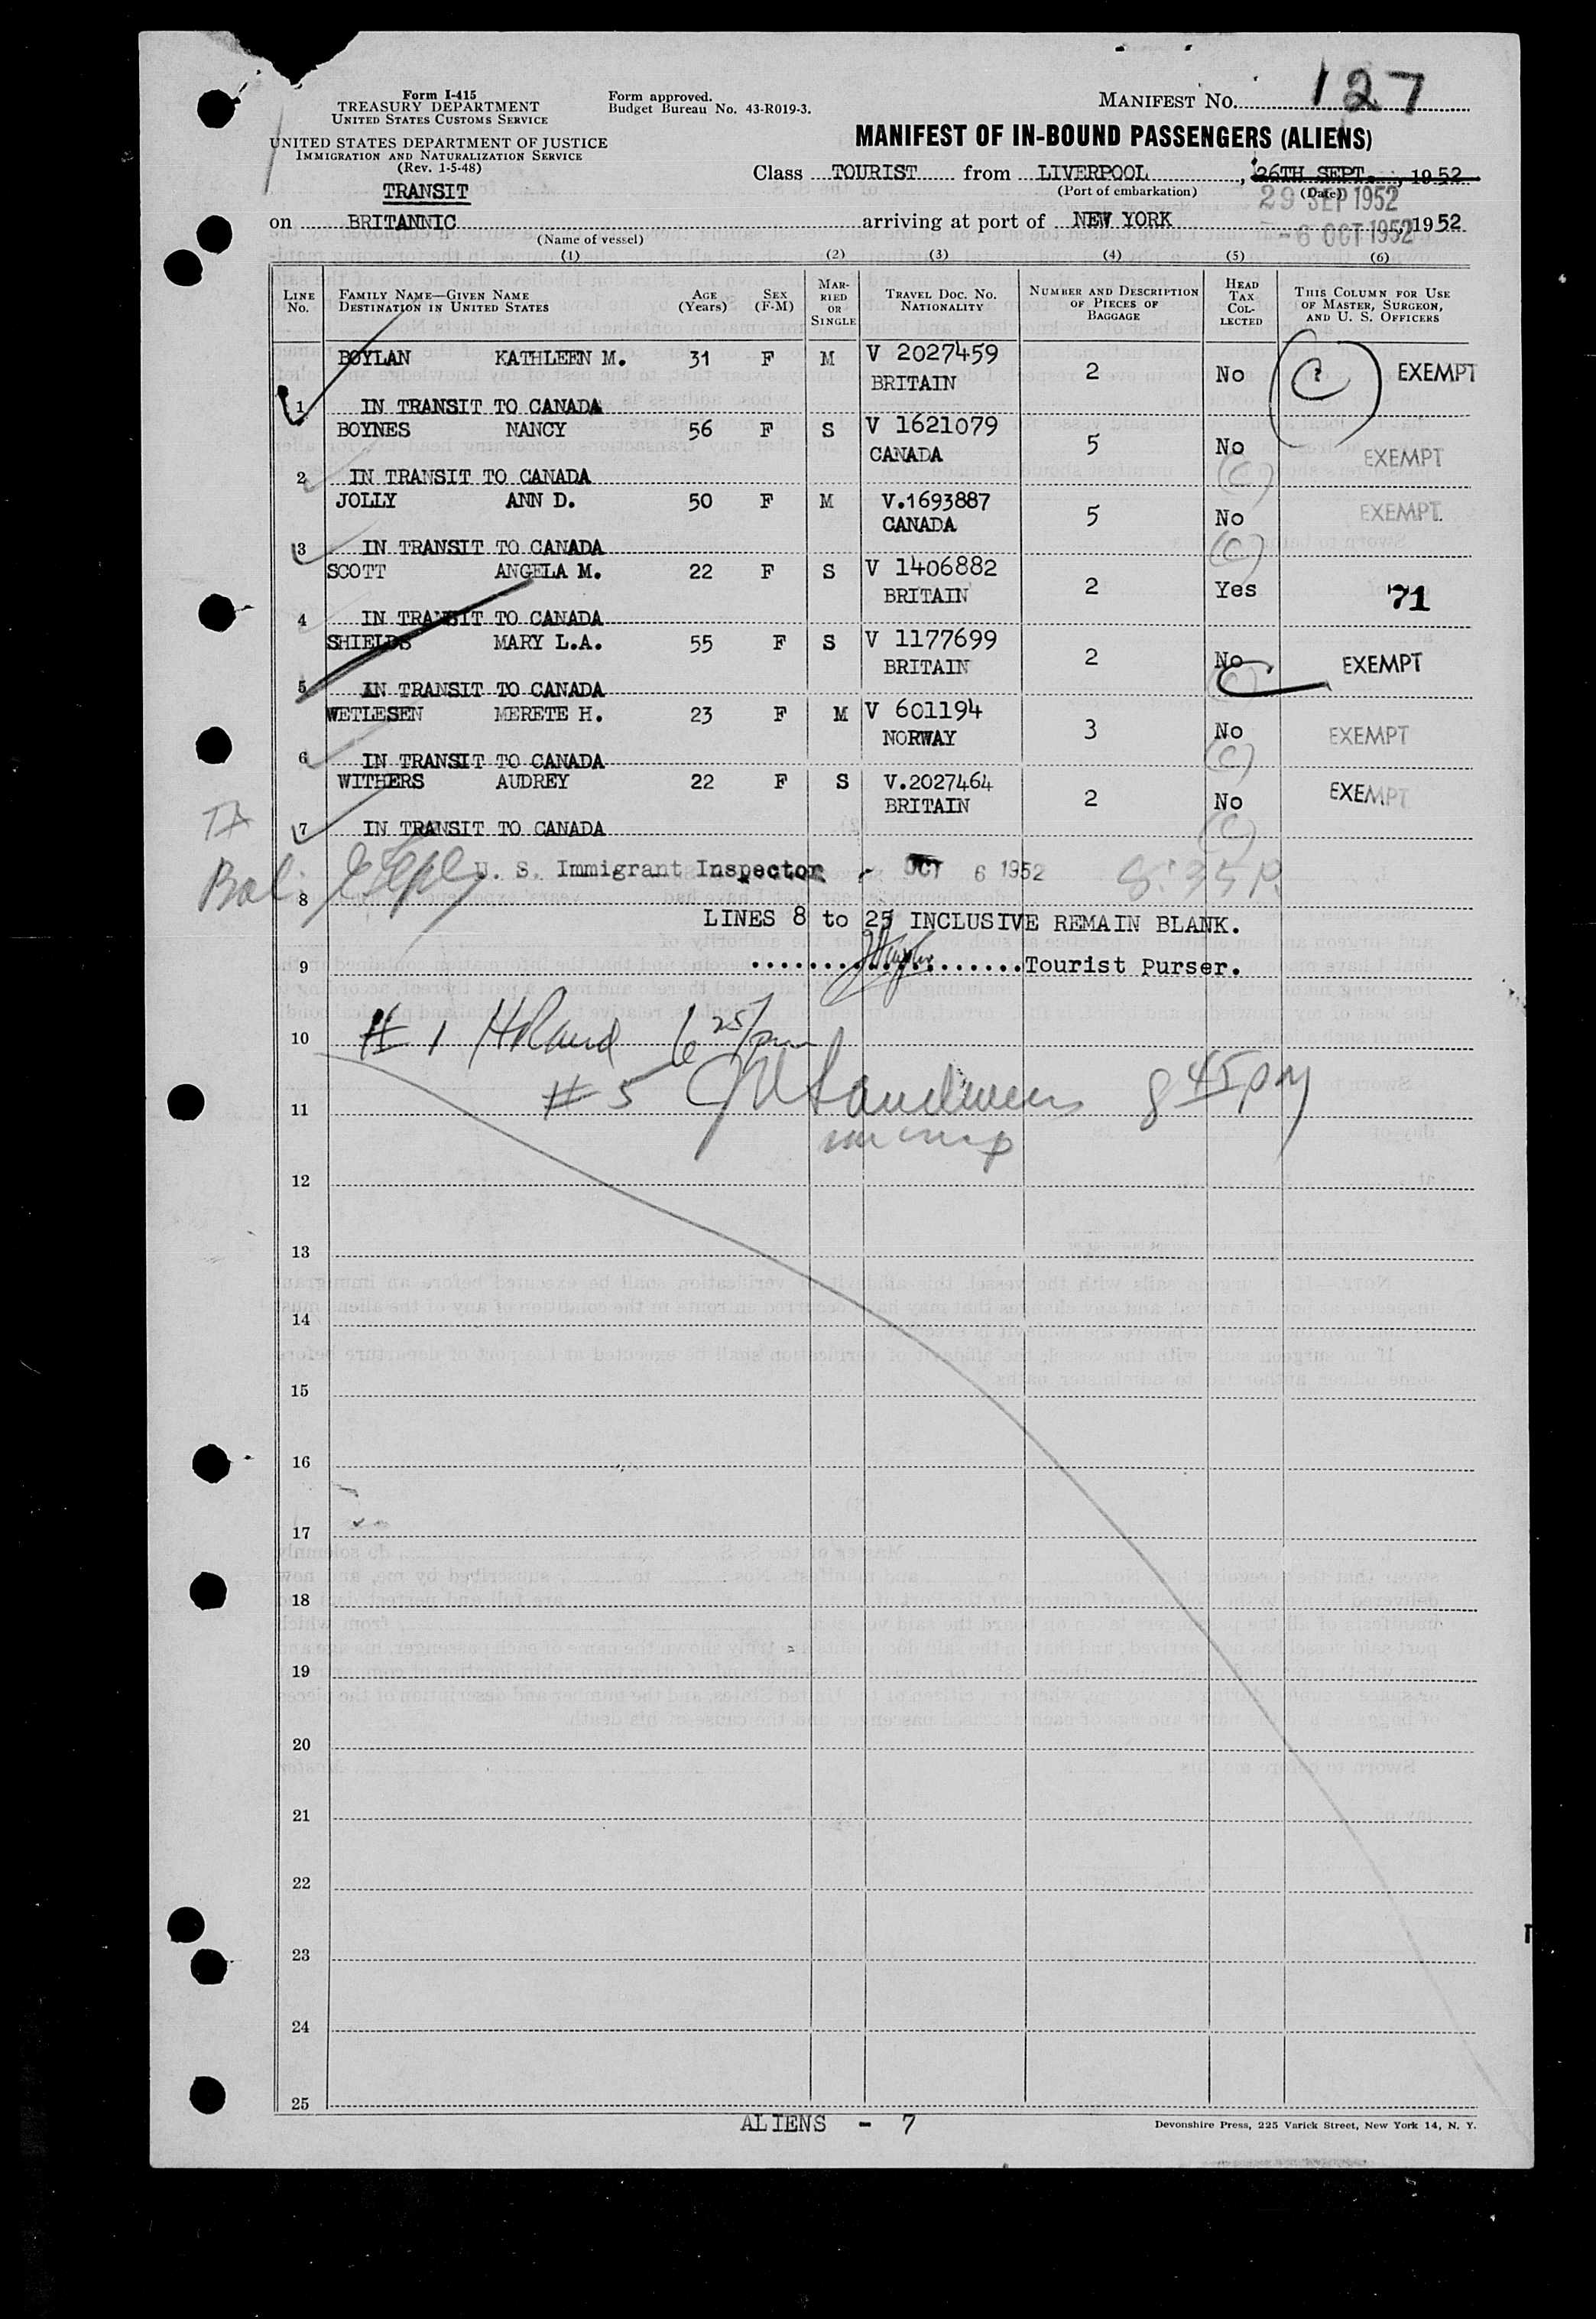 Form I-415
TREASURY DEPARTMENT
UNITED STATES CUSTOMS SERVICE
UNITED STATES DEPARTMENT OF JUSTICE
IMMIGRATION AND NATURALIZATION SERVICE
(Rev. 1-5-48)
TRANSIT
Form approved.
Budget Bureau No. 43-R019-3.
MANIFEST NO. 127
MANIFEST OF IN-BOUND PASSENGERS (ALIENS)
Class TOURIST from LIVERPOOL, 26TH SEPT., 1952
(Port of embarkation) (Date)
29 SEP 1952
on BRITANNIC arriving at port of NEW YORK -6 OCT 1952, 1952
(Name of vessel)
(1) (2) (3) (4) (5) (6)
LINE NO. FAMILY NAME—GIVEN NAME DESTINATION IN UNITED STATES AGE (YEARS) SEX (F-M) MARRIED OR SINGLE TRAVEL DOC. NO. NATIONALITY NUMBER AND DESCRIPTION OF PIECES OF BAGGAGE HEAD TAX COLLECTED THIS COLUMN FOR USE OF MASTER, SURGEON, AND U. S. OFFICERS
BOYLAN KATHLEEN M. 31 F M V 2027459 BRITAIN 2 No EXEMPT
1 IN TRANSIT TO CANADA
BOYNES NANCY 56 F S V 1621079 CANADA 5 No (C) EXEMPT
2 IN TRANSIT TO CANADA
JOLLY ANN D. 50 F M V.1693887 CANADA 5 No (C) EXEMPT
3 IN TRANSIT TO CANADA
SCOTT ANGELA M. 22 F S V 1406882 BRITAIN 2 Yes 71
4 IN TRANSIT TO CANADA
SHIELDS MARY L.A. 55 F S V 1177699 BRITAIN 2 No (C) EXEMPT
5 IN TRANSIT TO CANADA
WETLESEN MERETE H. 23 F M V 601194 NORWAY 3 No (C) EXEMPT
6 IN TRANSIT TO CANADA
WITHERS AUDREY 22 F S V.2027464 BRITAIN 2 No (C) EXEMPT
7 IN TRANSIT TO CANADA
U. S. Immigrant Inspector OCT 6 1952 8:35 P.
8
LINES 8 to 25 INCLUSIVE REMAIN BLANK.
9 Tourist Purser.
10 #1 6 25/pm
11 #5 8 45 pm
12
13
14
15
16
17
18
19
20
21
22
23
24
25
ALIENS - 7
Devonshire Press, 225 Varick Street, New York 14, N. Y.